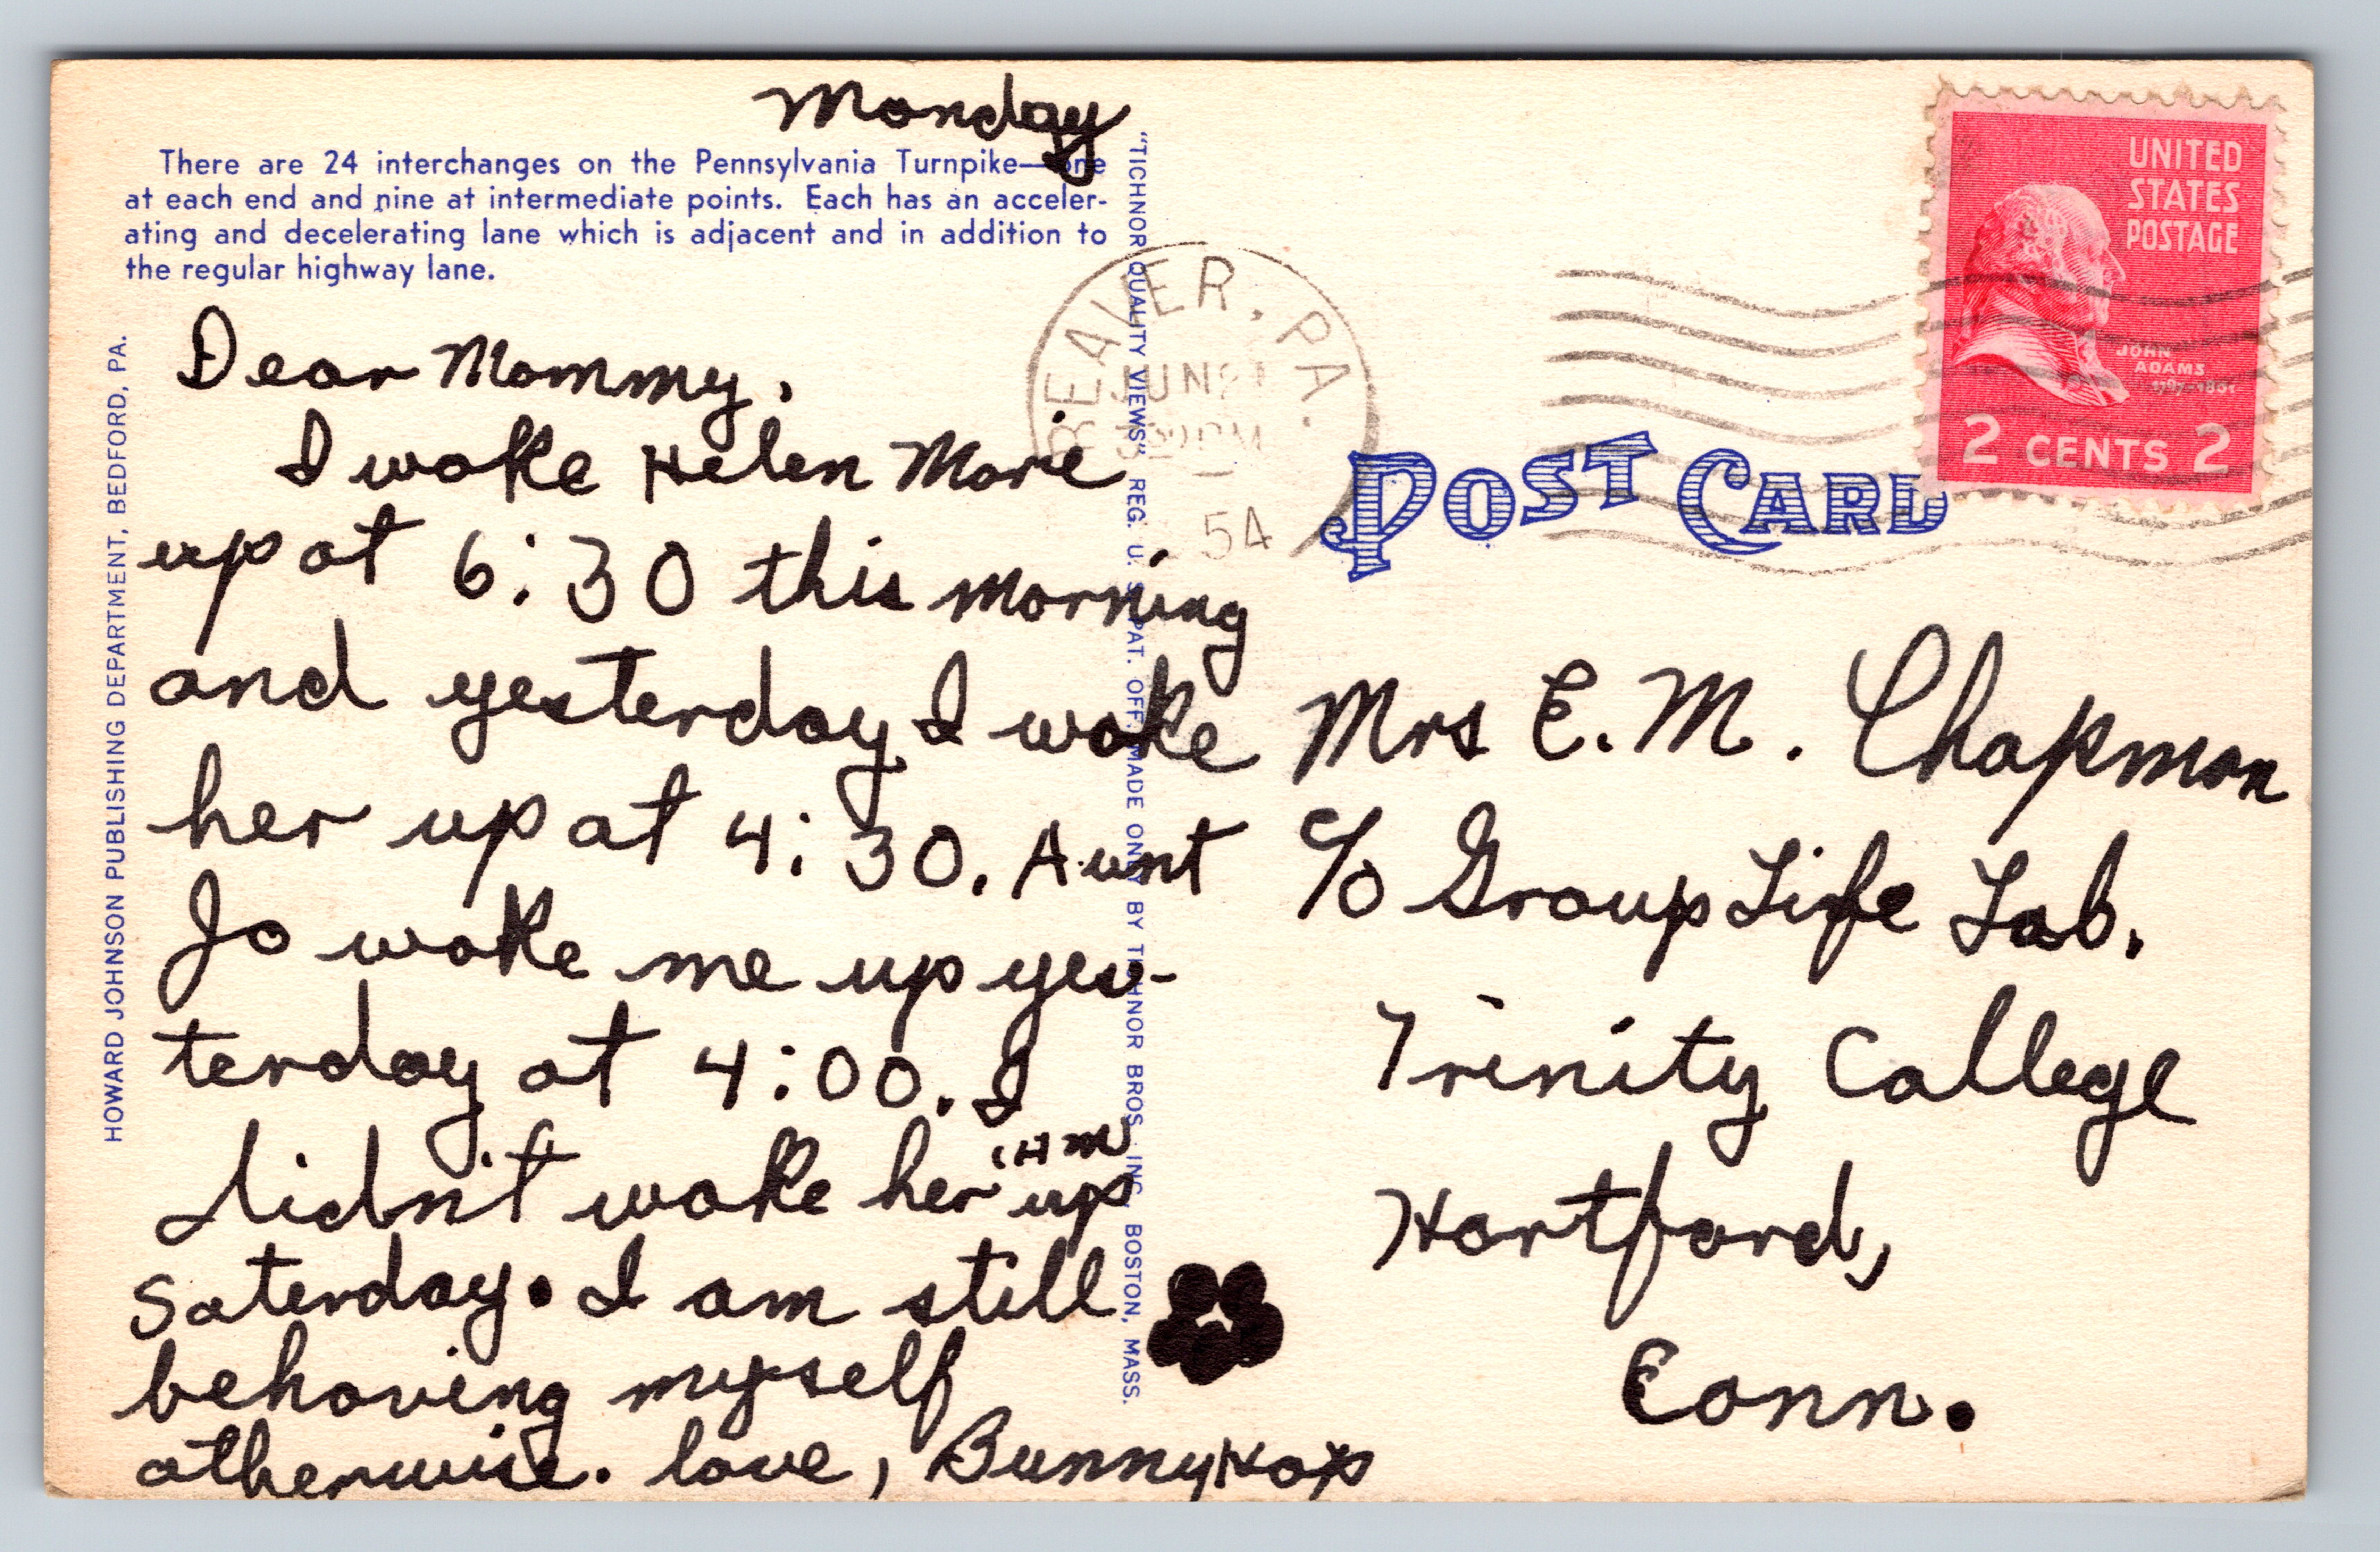 Monday
There are 24 interchanges on the Pennsylvania Turnpike—one
at each end and nine at intermediate points. Each has an acceler-
ating and decelerating lane which is adjacent and in addition to
the regular highway lane.
Dear Mommy,
I woke Helen Marie
up at 6:30 this morning
and yesterday I woke
her up at 4:30. Aunt
Jo woke me up yes-
terday at 4:00. I
didn't woke her (HM
up
Saterday. I am still
behaving myself
otherwise. love, BunnyHop
HOWARD JOHNSON PUBLISHING DEPARTMENT, BEDFORD, PA.
"TICHNOR QUALITY VIEWS" REG. U. S. PAT. OFF. MADE ONLY BY TICHNOR BROS. INC. BOSTON, MASS.
BEAVER, PA.
JUN
PM
54
POST CARD
UNITED
STATES
POSTAGE
JOHN
ADAMS
1797-1801
2 CENTS 2
Mrs E. M. Chapman
c/o Group Life Lab.
Trinity College
Hartford,
Conn.